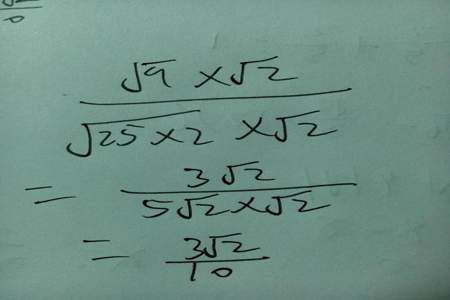 √9 × √2
√25×2 × √2
= 3√2
5√2×√2
= 3√2
10